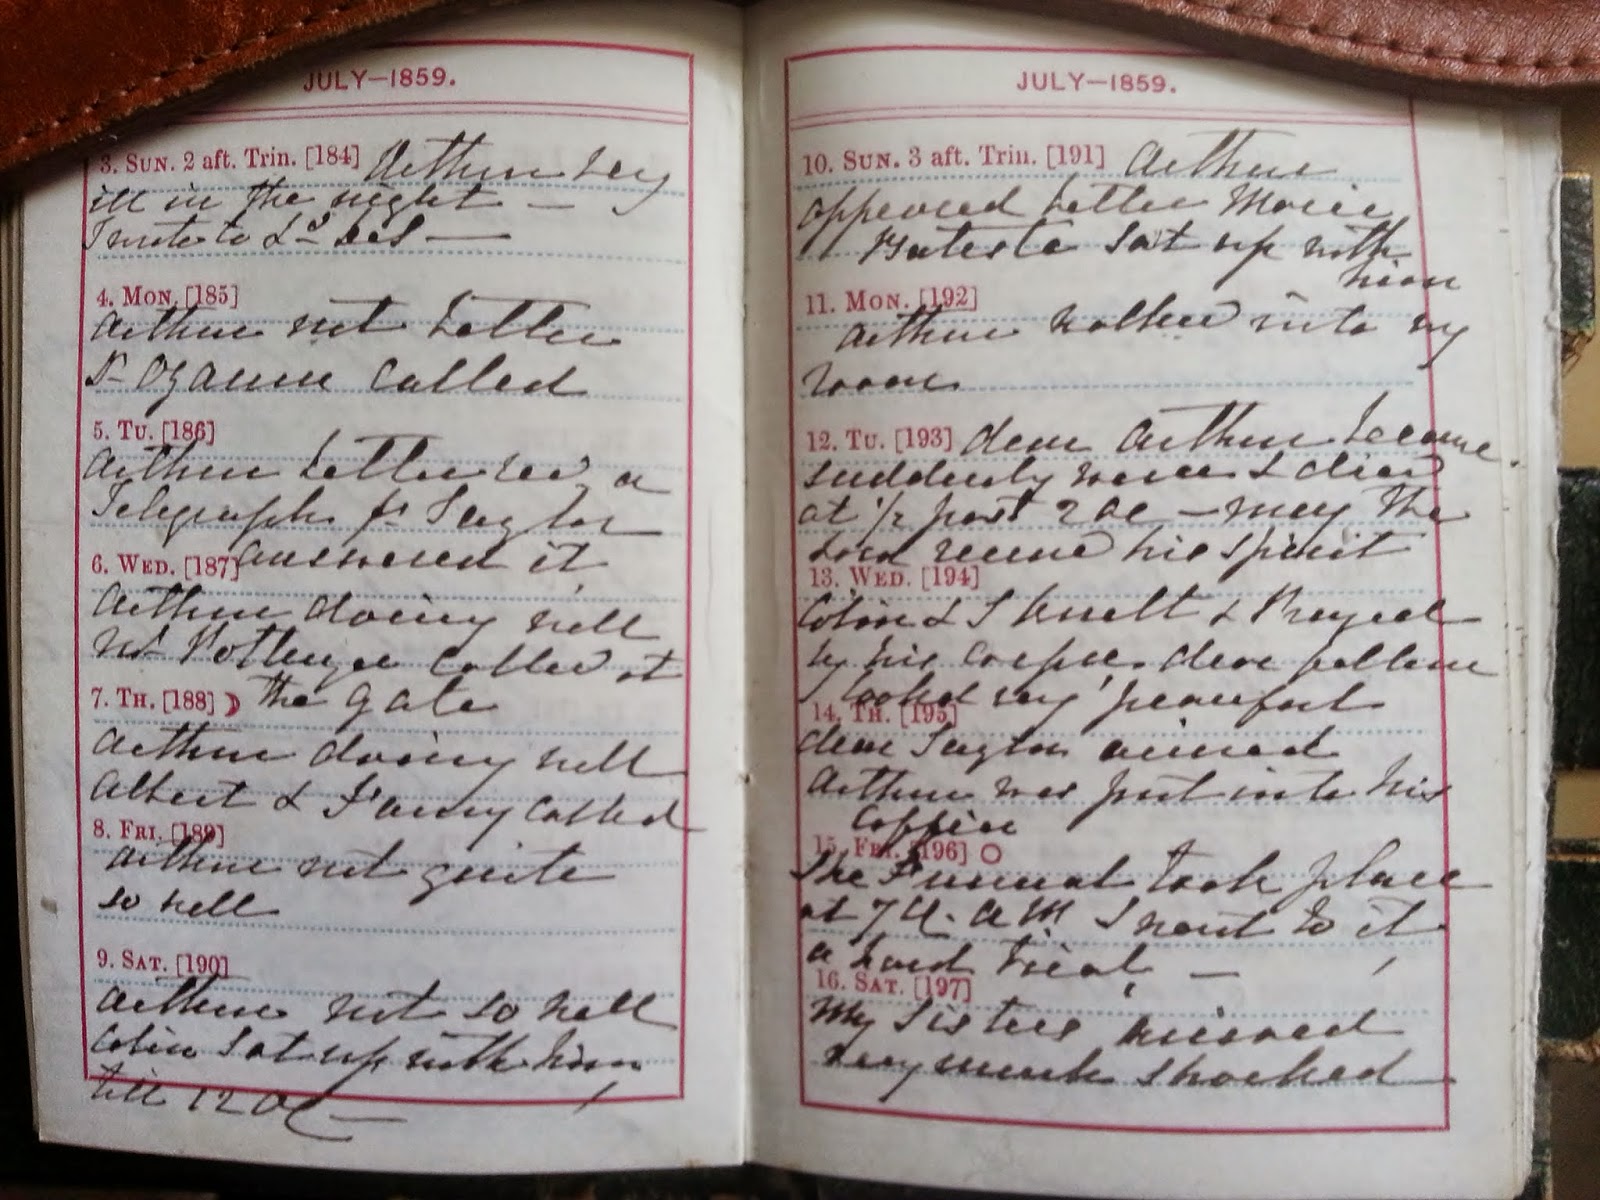 JULY—1859.
3. SUN. 2 aft. Trin. [184] Arthur very
ill in the night —
I wrote to
4. MON. [185]
Arthur not better
Dr Ozanne called
5. TU. [186]
Arthur better recd a
Telegraph fr Seyton
answered it
6. WED. [187]
Arthur doing well
called at
the gate
7. TH. [188]
Arthur doing well
Albert & Fanny called
8. FRI. [189]
Arthur not quite
so well
9. SAT. [190]
Arthur not so well
Colin sat up with him
till 12 OC —
JULY—1859.
10. SUN. 3 aft. Trin. [191] Arthur
appeared better
sat up with
him
11. MON. [192]
Arthur walked into my
room
12. TU. [193] dear Arthur became
suddenly worse & died
at ½ past 2 OC — may the
Lord receive his spirit
13. WED. [194]
Colin & I knelt & Prayed
by his corpse, dear fellow
looked very peaceful
14. TH. [195]
dear Seyton arrived
Arthur was put into his
coffin
15. FRI. [196]
The Funeral took place
at 7 AM I went to it
a hard trial, —
16. SAT. [197]
My Sisters arrived
very much shocked